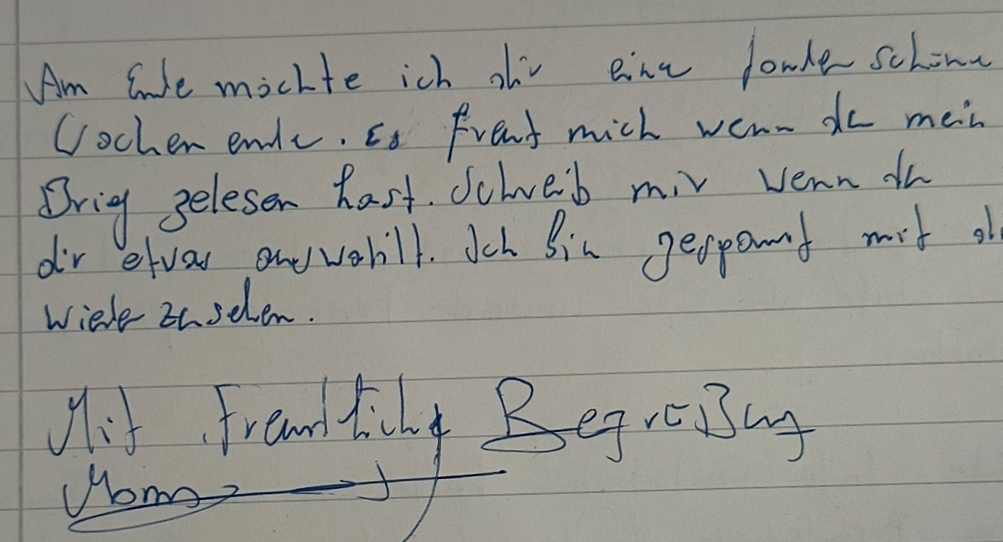 Am Ende möchte ich dir eine sonder schöne
Wochenende. Es freut mich wenn du mein
Brief gelesen hast. Schreib mir wenn du
dir etwas auswählt. Ich bin gespannt mit
wieder zusehen.
Mit freundlich Begrüßung